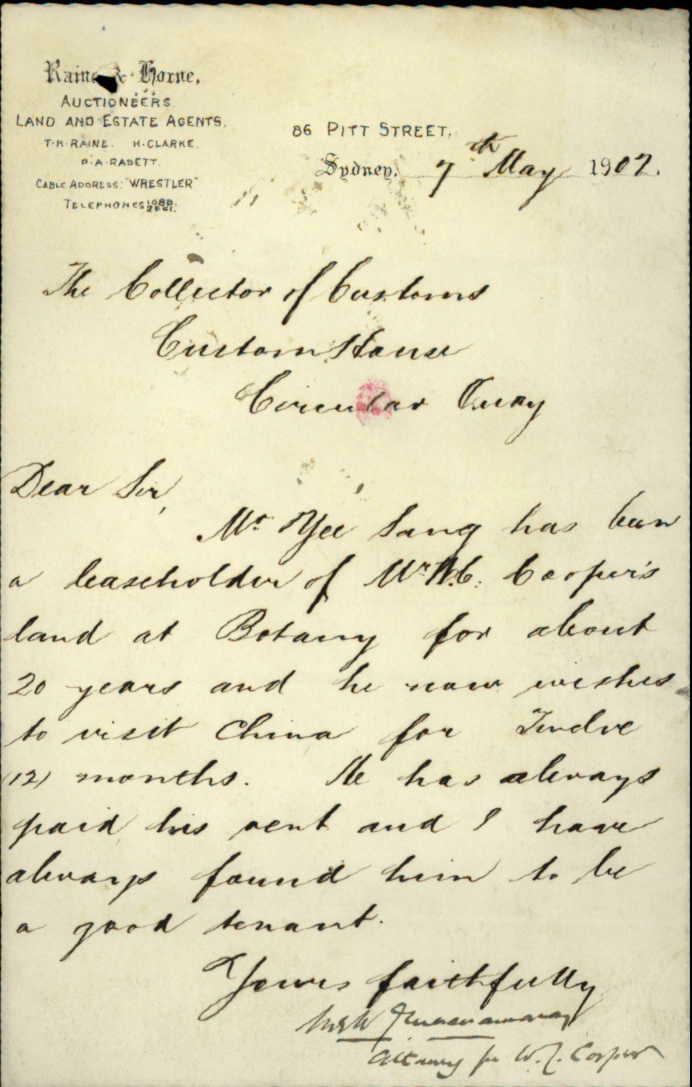 Raine & Horne,
AUCTIONEERS
LAND AND ESTATE AGENTS.
T.R. RAINE. H. CLARKE.
CABLE ADDRESS: "WRESTLER"
TELEPHONES
86 PITT STREET,
Sydney, 7th May 1907.
The Collector of Customs
Custom House
Circular Quay
Dear Sir,
Mr Yee Sang has been
a leaseholder of Mr W.C. Cooper's
land at Botany for about
20 years and he now wishes
to visit China for Twelve
(12) months. He has always
paid his rent and I have
always found him to be
a good tenant.
Yours faithfully
Attorney for W. C. Cooper